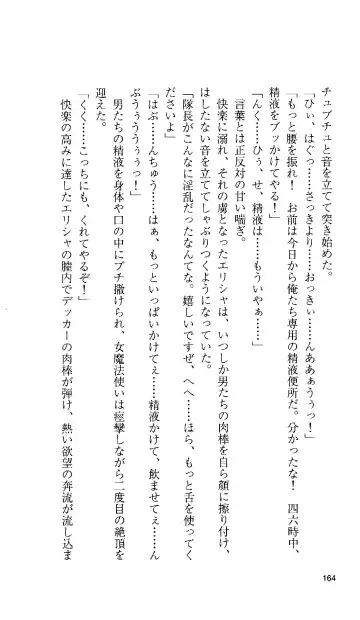 チュブチュと音を立てて突き始めた。
「ひぃ、はぐっ……さっきより……おっきぃ……んああぁうぅっ！」
「もっと腰を振れ！　お前は今日から俺たち専用の精液便所だ。分かったな！　四六時中、
精液をブッかけてやる！」
「んく……ひぅ、せ、精液は……もういやぁ……」
言葉とは正反対の甘い喘ぎ。
快楽に溺れ、それの虜となったエリシャは、いつしか男たちの肉棒を自ら顔に擦り付け、
はしたない音を立ててしゃぶりつくようになっていた。
「隊長がこんなに淫乱だったなんてな。嬉しいですぜ、へへ……ほら、もっと舌を使ってく
ださいよ」
「はぶ……んちゅう……はぁ、もっといっぱいかけてぇ……精液かけて、飲ませてぇ……ん
ぶううううぅぅっ！」
男たちの精液を身体や口の中にブチ撒けられ、女魔法使いは痙攣しながら二度目の絶頂を
迎えた。
「くく……こっちにも、くれてやるぞ！」
快楽の高みに達したエリシャの膣内でデッカーの肉棒が弾け、熱い欲望の奔流が流し込ま
164